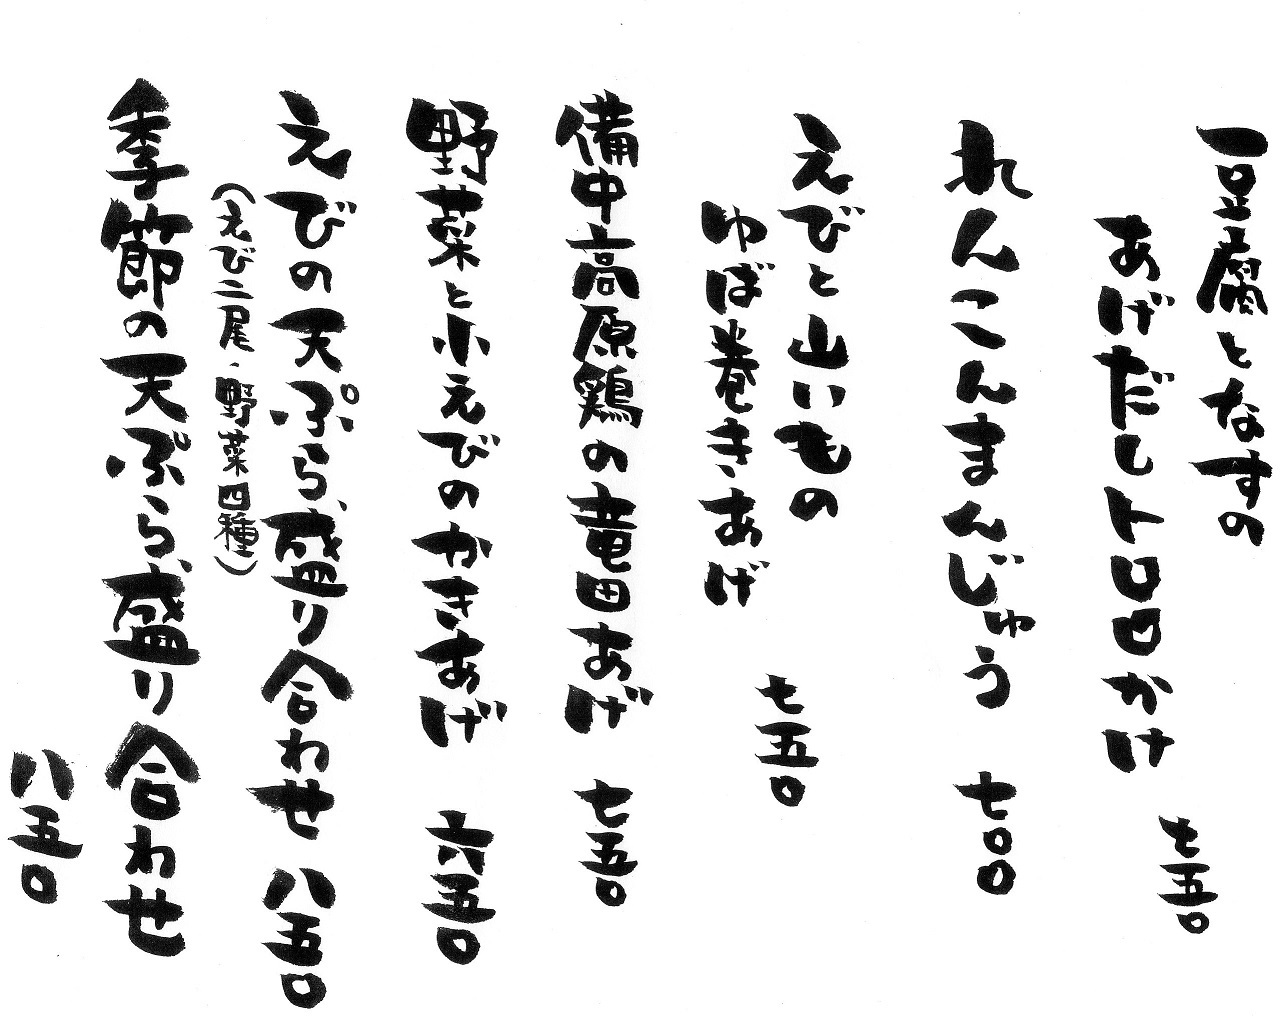 豆腐となすの
あげだしトロロかけ
七五〇
れんこんまんじゅう 七〇〇
えびと山いもの
ゆば巻きあげ
七五〇
備中高原鶏の竜田あげ 七五〇
野菜と小えびのかきあげ 六五〇
えびの天ぷら盛り合わせ 八五〇
(えび二尾、野菜四種)
季節の天ぷら盛り合わせ
八五〇